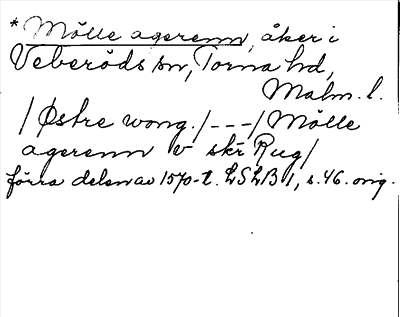 * Mölle agerenn, åker i
Veberöds sn, Torna hd,
Malm. l.
/Østre wong./---/Mölle
agerenn v skr Rug/
förra delen av 1570-t. LSLB 1, s. 46. orig.